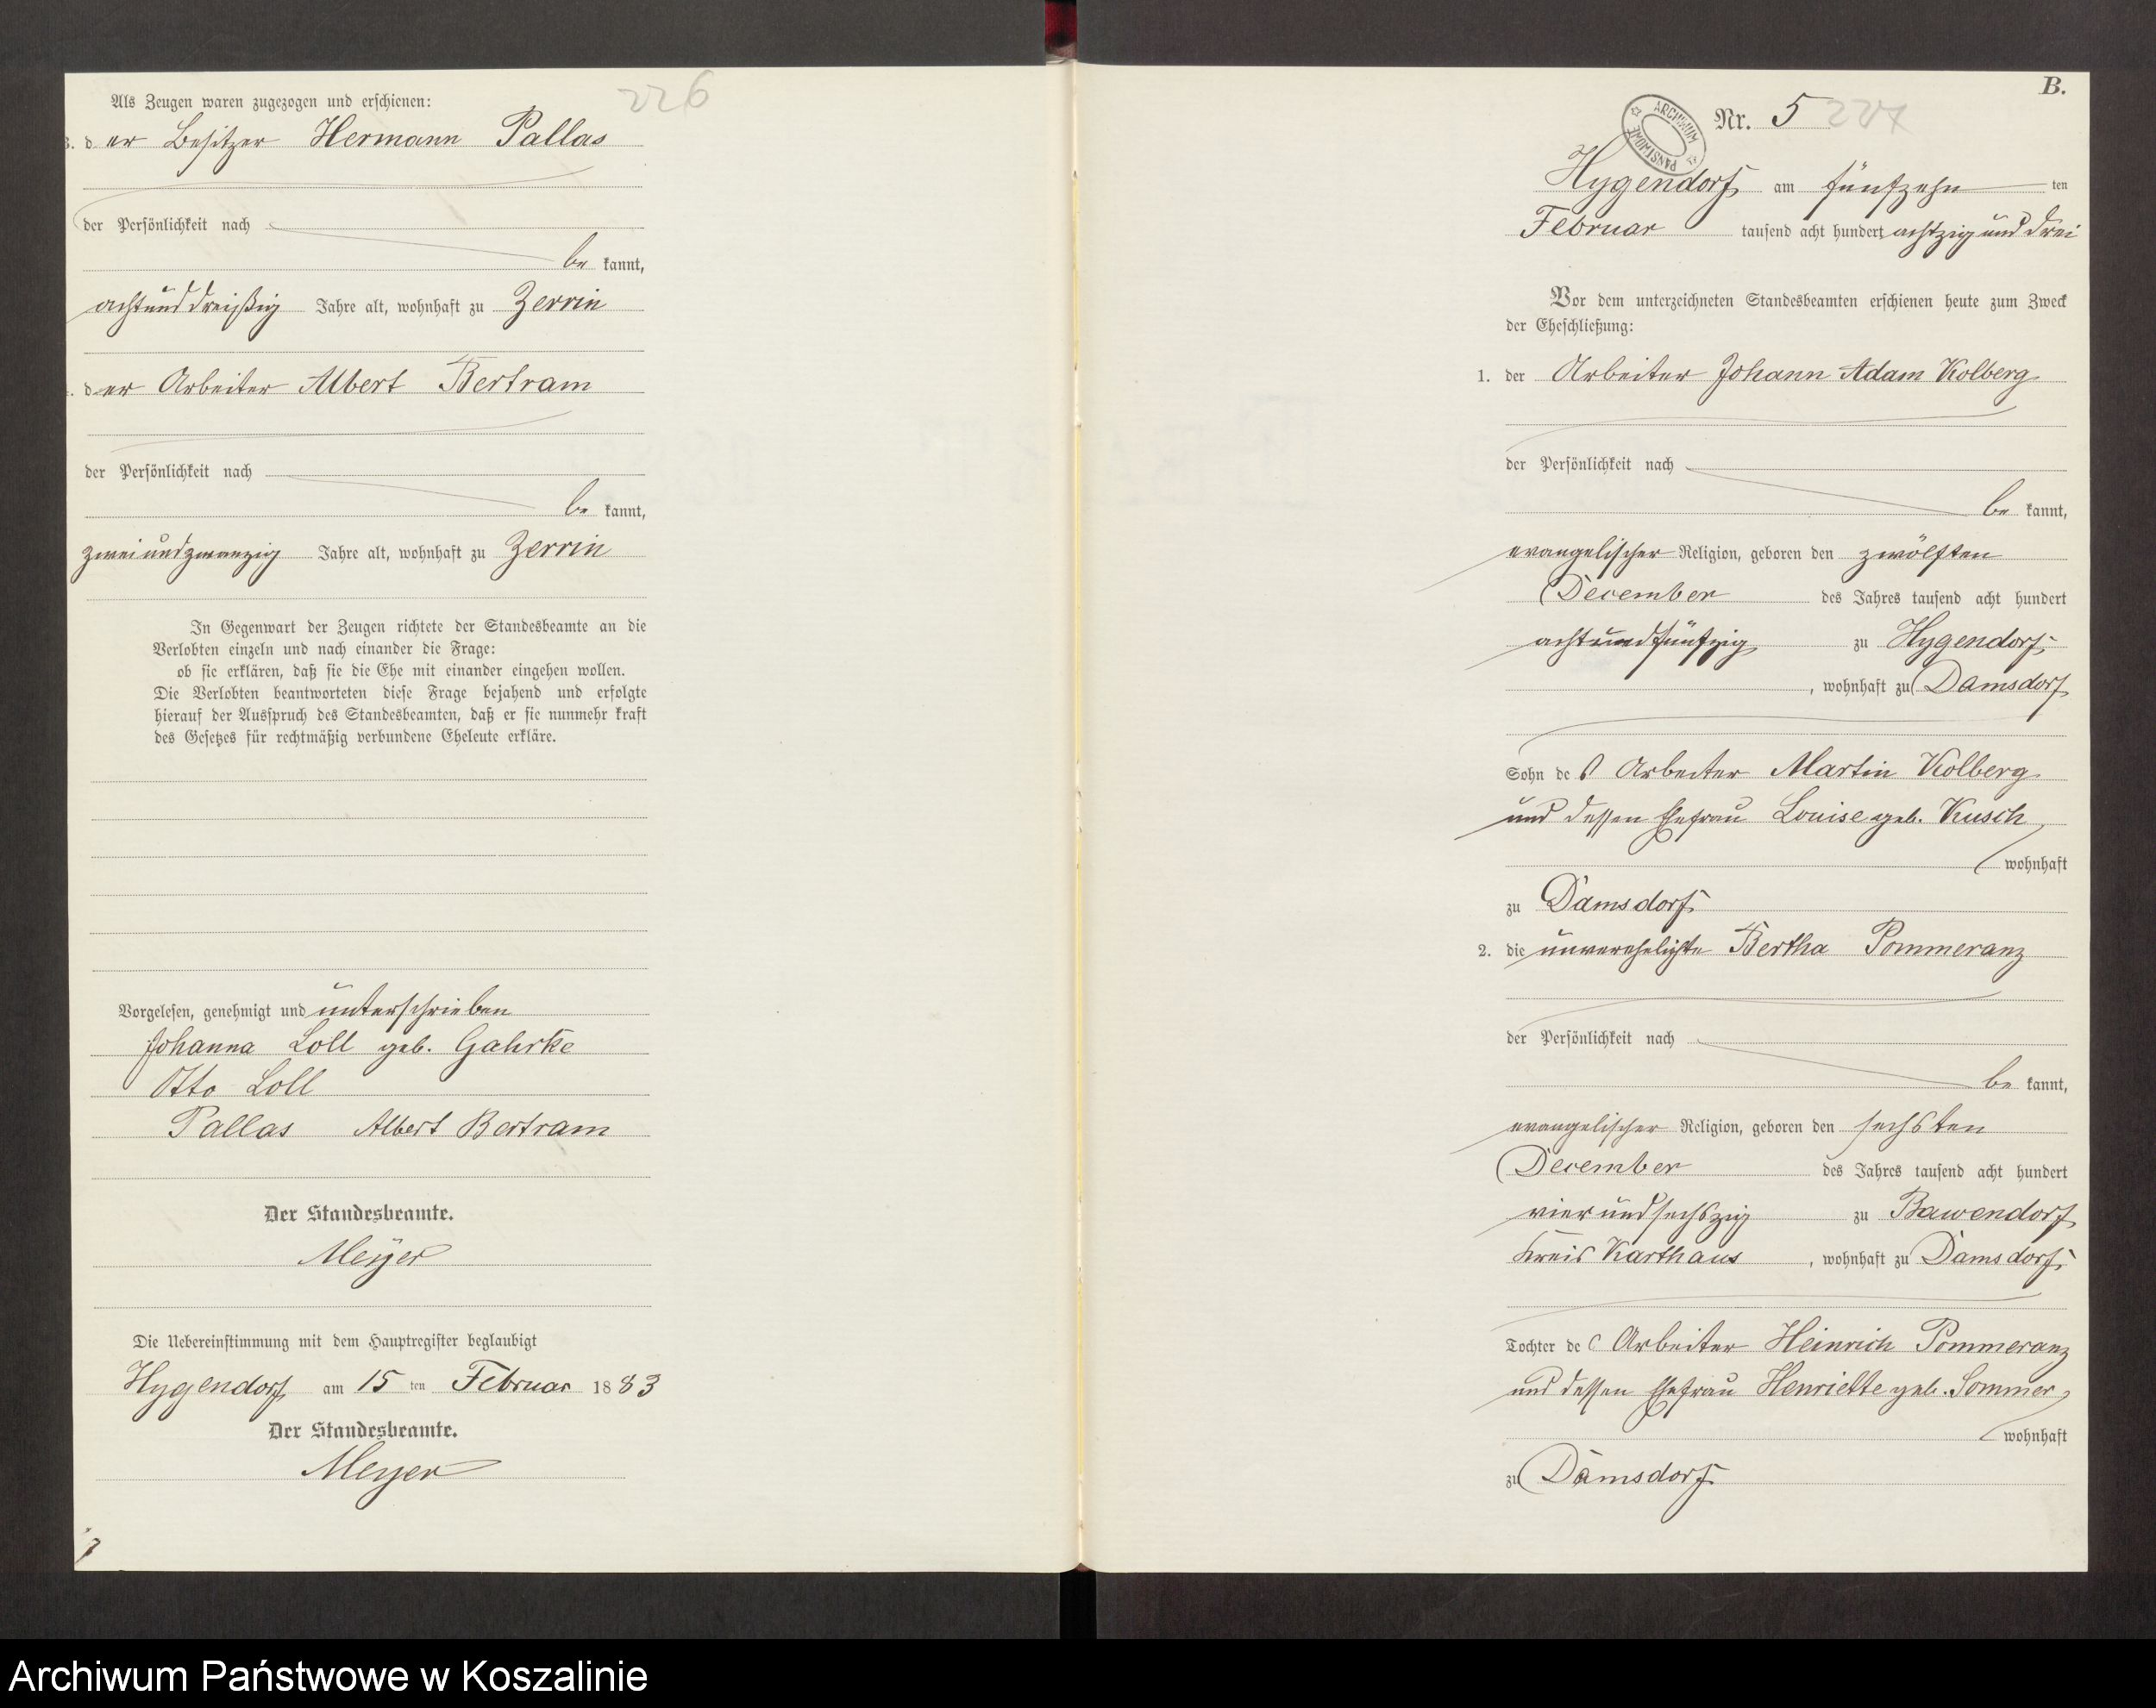 Als Zeugen waren zugezogen und erschienen:
226
3. der Besitzer Hermann Pallas
der Persönlichkeit nach
be kannt,
achtunddreißig Jahre alt, wohnhaft zu Zerrin
4. der Arbeiter Albert Bertram
der Persönlichkeit nach
be kannt,
zweiundzwanzig Jahre alt, wohnhaft zu Zerrin
In Gegenwart der Zeugen richtete der Standesbeamte an die
Verlobten einzeln und nach einander die Frage:
ob sie erklären, daß sie die Ehe mit einander eingehen wollen.
Die Verlobten beantworteten diese Frage bejahend und erfolgte
hierauf der Ausspruch des Standesbeamten, daß er sie nunmehr kraft
des Gesetzes für rechtmäßig verbundene Eheleute erkläre.
Vorgelesen, genehmigt und unterschrieben
Johanna Loll geb. Gahrke
Otto Loll
Pallas Albert Bertram
Der Standesbeamte.
Meyer
Die Uebereinstimmung mit dem Hauptregister beglaubigt
Hygendorf am 15 ten Februar 1883
Der Standesbeamte.
Meyer
B.
ARCHIWUM PAŃSTWOWE
Nr. 5 227
Hygendorf am fünfzehn ten
Februar tausend acht hundert achtzig und drei
Vor dem unterzeichneten Standesbeamten erschienen heute zum Zweck
der Eheschließung:
1. der Arbeiter Johann Adam Kolberg
der Persönlichkeit nach
be kannt,
evangelischer Religion, geboren den zwölften
December des Jahres tausend acht hundert
achtundfünfzig zu Hygendorf
, wohnhaft zu Damsdorf
Sohn des Arbeiter Martin Kolberg
und dessen Ehefrau Louise geb. Kusch
wohnhaft
zu Damsdorf
2. die unverehelichte Bertha Pommeranz
der Persönlichkeit nach
be kannt,
evangelischer Religion, geboren den sechsten
December des Jahres tausend acht hundert
vierundsechszig zu Bawendorf
Kreis Karthaus , wohnhaft zu Damsdorf
Tochter des Arbeiter Heinrich Pommeranz
und dessen Ehefrau Henriette geb. Sommer
wohnhaft
zu Damsdorf
Archiwum Państwowe w Koszalinie